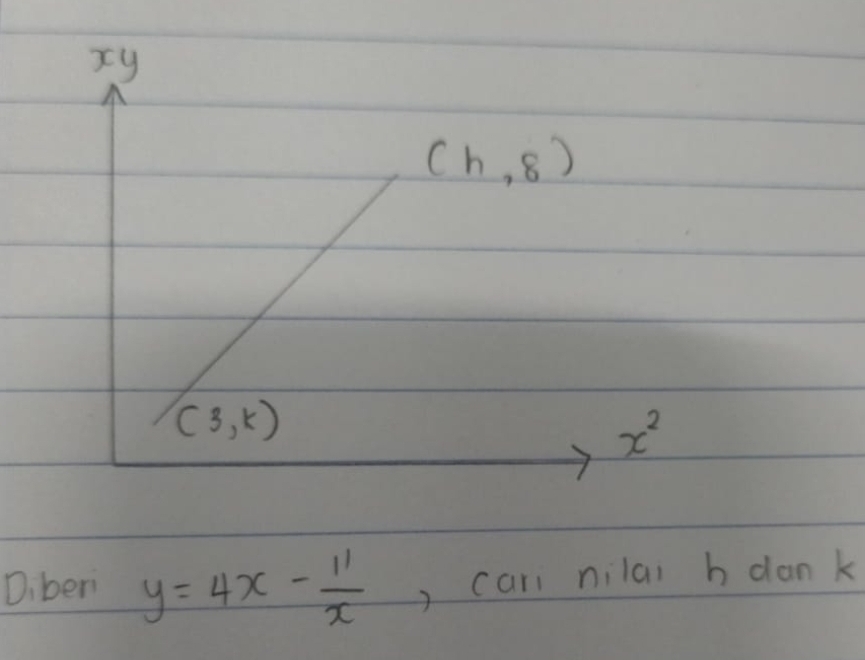 xy
(h, 8)
(3, k)
x²
Diberi y = 4x - 11/x , cari nilai h dan k